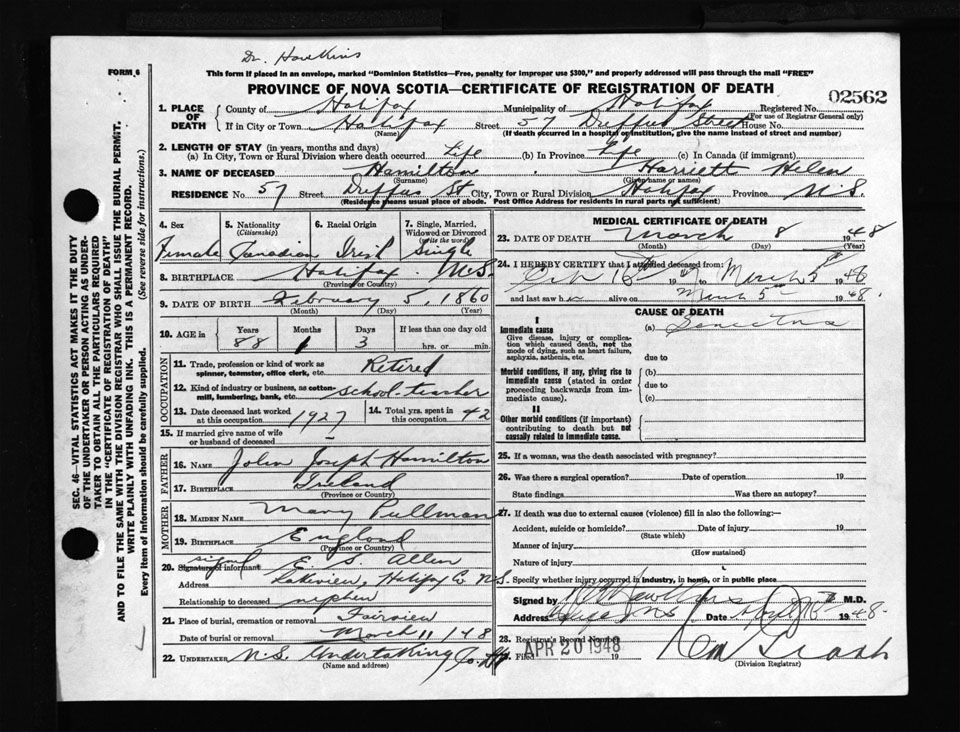 Dr. Hawkins
FORM 6
This form if placed in an envelope, marked "Dominion Statistics—Free, penalty for improper use $300," and properly addressed will pass through the mail "FREE"
PROVINCE OF NOVA SCOTIA—CERTIFICATE OF REGISTRATION OF DEATH
02562
1. PLACE OF DEATH
County of Halifax Municipality of Halifax Registered No.
(For use of Registrar General only)
If in City or Town Halifax Street 57 Duffus Street House No.
(Name) (If death occurred in a hospital or institution, give the name instead of street and number)
2. LENGTH OF STAY (in years, months and days)
(a) In City, Town or Rural Division where death occurred Life (b) In Province Life (c) In Canada (if immigrant)
3. NAME OF DECEASED Hamilton Harriett Helen
(Surname) (Given name or names)
RESIDENCE No. 57 Street Duffus St City, Town or Rural Division Halifax Province N.S.
(Residence means usual place of abode. Post Office Address for residents in rural parts not sufficient)
SEC. 46—VITAL STATISTICS ACT MAKES IT THE DUTY
OF THE UNDERTAKER OR PERSON ACTING AS UNDER-
TAKER TO OBTAIN ALL THE PARTICULARS REQUIRED
IN THE "CERTIFICATE OF REGISTRATION OF DEATH"
AND TO FILE THE SAME WITH THE DIVISION REGISTRAR WHO SHALL ISSUE THE BURIAL PERMIT.
WRITE PLAINLY WITH UNFADING INK. THIS IS A PERMANENT RECORD.
Every item of information should be carefully supplied. (See reverse side for instructions.)
4. Sex 5. Nationality (Citizenship) 6. Racial Origin 7. Single, Married, Widowed or Divorced (write the word)
Female Canadian Irish Single
8. BIRTHPLACE Halifax N.S.
(Province or Country)
9. DATE OF BIRTH February 5, 1860
(Month) (Day) (Year)
10. AGE in Years Months Days If less than one day old
88 1 3 hrs. or min.
OCCUPATION
11. Trade, profession or kind of work as spinner, teamster, office clerk, etc. Retired
12. Kind of industry or business, as cotton-mill, lumbering, bank, etc. school-teacher
13. Date deceased last worked at this occupation 1927 14. Total yrs. spent in this occupation 42
15. If married give name of wife or husband of deceased
FATHER
16. NAME John Joseph Hamilton
17. BIRTHPLACE Ireland
(Province or Country)
MOTHER
18. MAIDEN NAME Mary Pullman
19. BIRTHPLACE England
(Province or Country)
20. Signature of informant signed E. S. Allen
Address Lakeview, Halifax Co N.S.
Relationship to deceased nephew
21. Place of burial, cremation or removal Fairview
Date of burial or removal March 11 1948
22. UNDERTAKER N.S. Undertaking Co.
(Name and address)
MEDICAL CERTIFICATE OF DEATH
23. DATE OF DEATH March 8 1948
(Month) (Day) (Year)
24. I HEREBY CERTIFY that I attended deceased from:
March 5th 1948
and last saw her alive on March 5th 1948.
CAUSE OF DEATH
I
Immediate cause (a)
Give disease, injury or complication which caused death, not the mode of dying, such as heart failure, asphyxia, asthenia, etc.
due to
Morbid conditions, if any, giving rise to immediate cause (stated in order proceeding backwards from immediate cause).
(b)
due to
(c)
II
Other morbid conditions (if important) contributing to death but not causally related to immediate cause.
25. If a woman, was the death associated with pregnancy?
26. Was there a surgical operation? Date of operation 19
State findings Was there an autopsy?
27. If death was due to external causes (violence) fill in also the following:—
Accident, suicide or homicide? Date of injury 19
(State which)
Manner of injury
(How sustained)
Nature of injury
Specify whether injury occurred in industry, in home, or in public place
Signed by M.D.
Address Date 1948
28. Registrar's Record Number
Filed APR 20 1948 19
(Division Registrar)